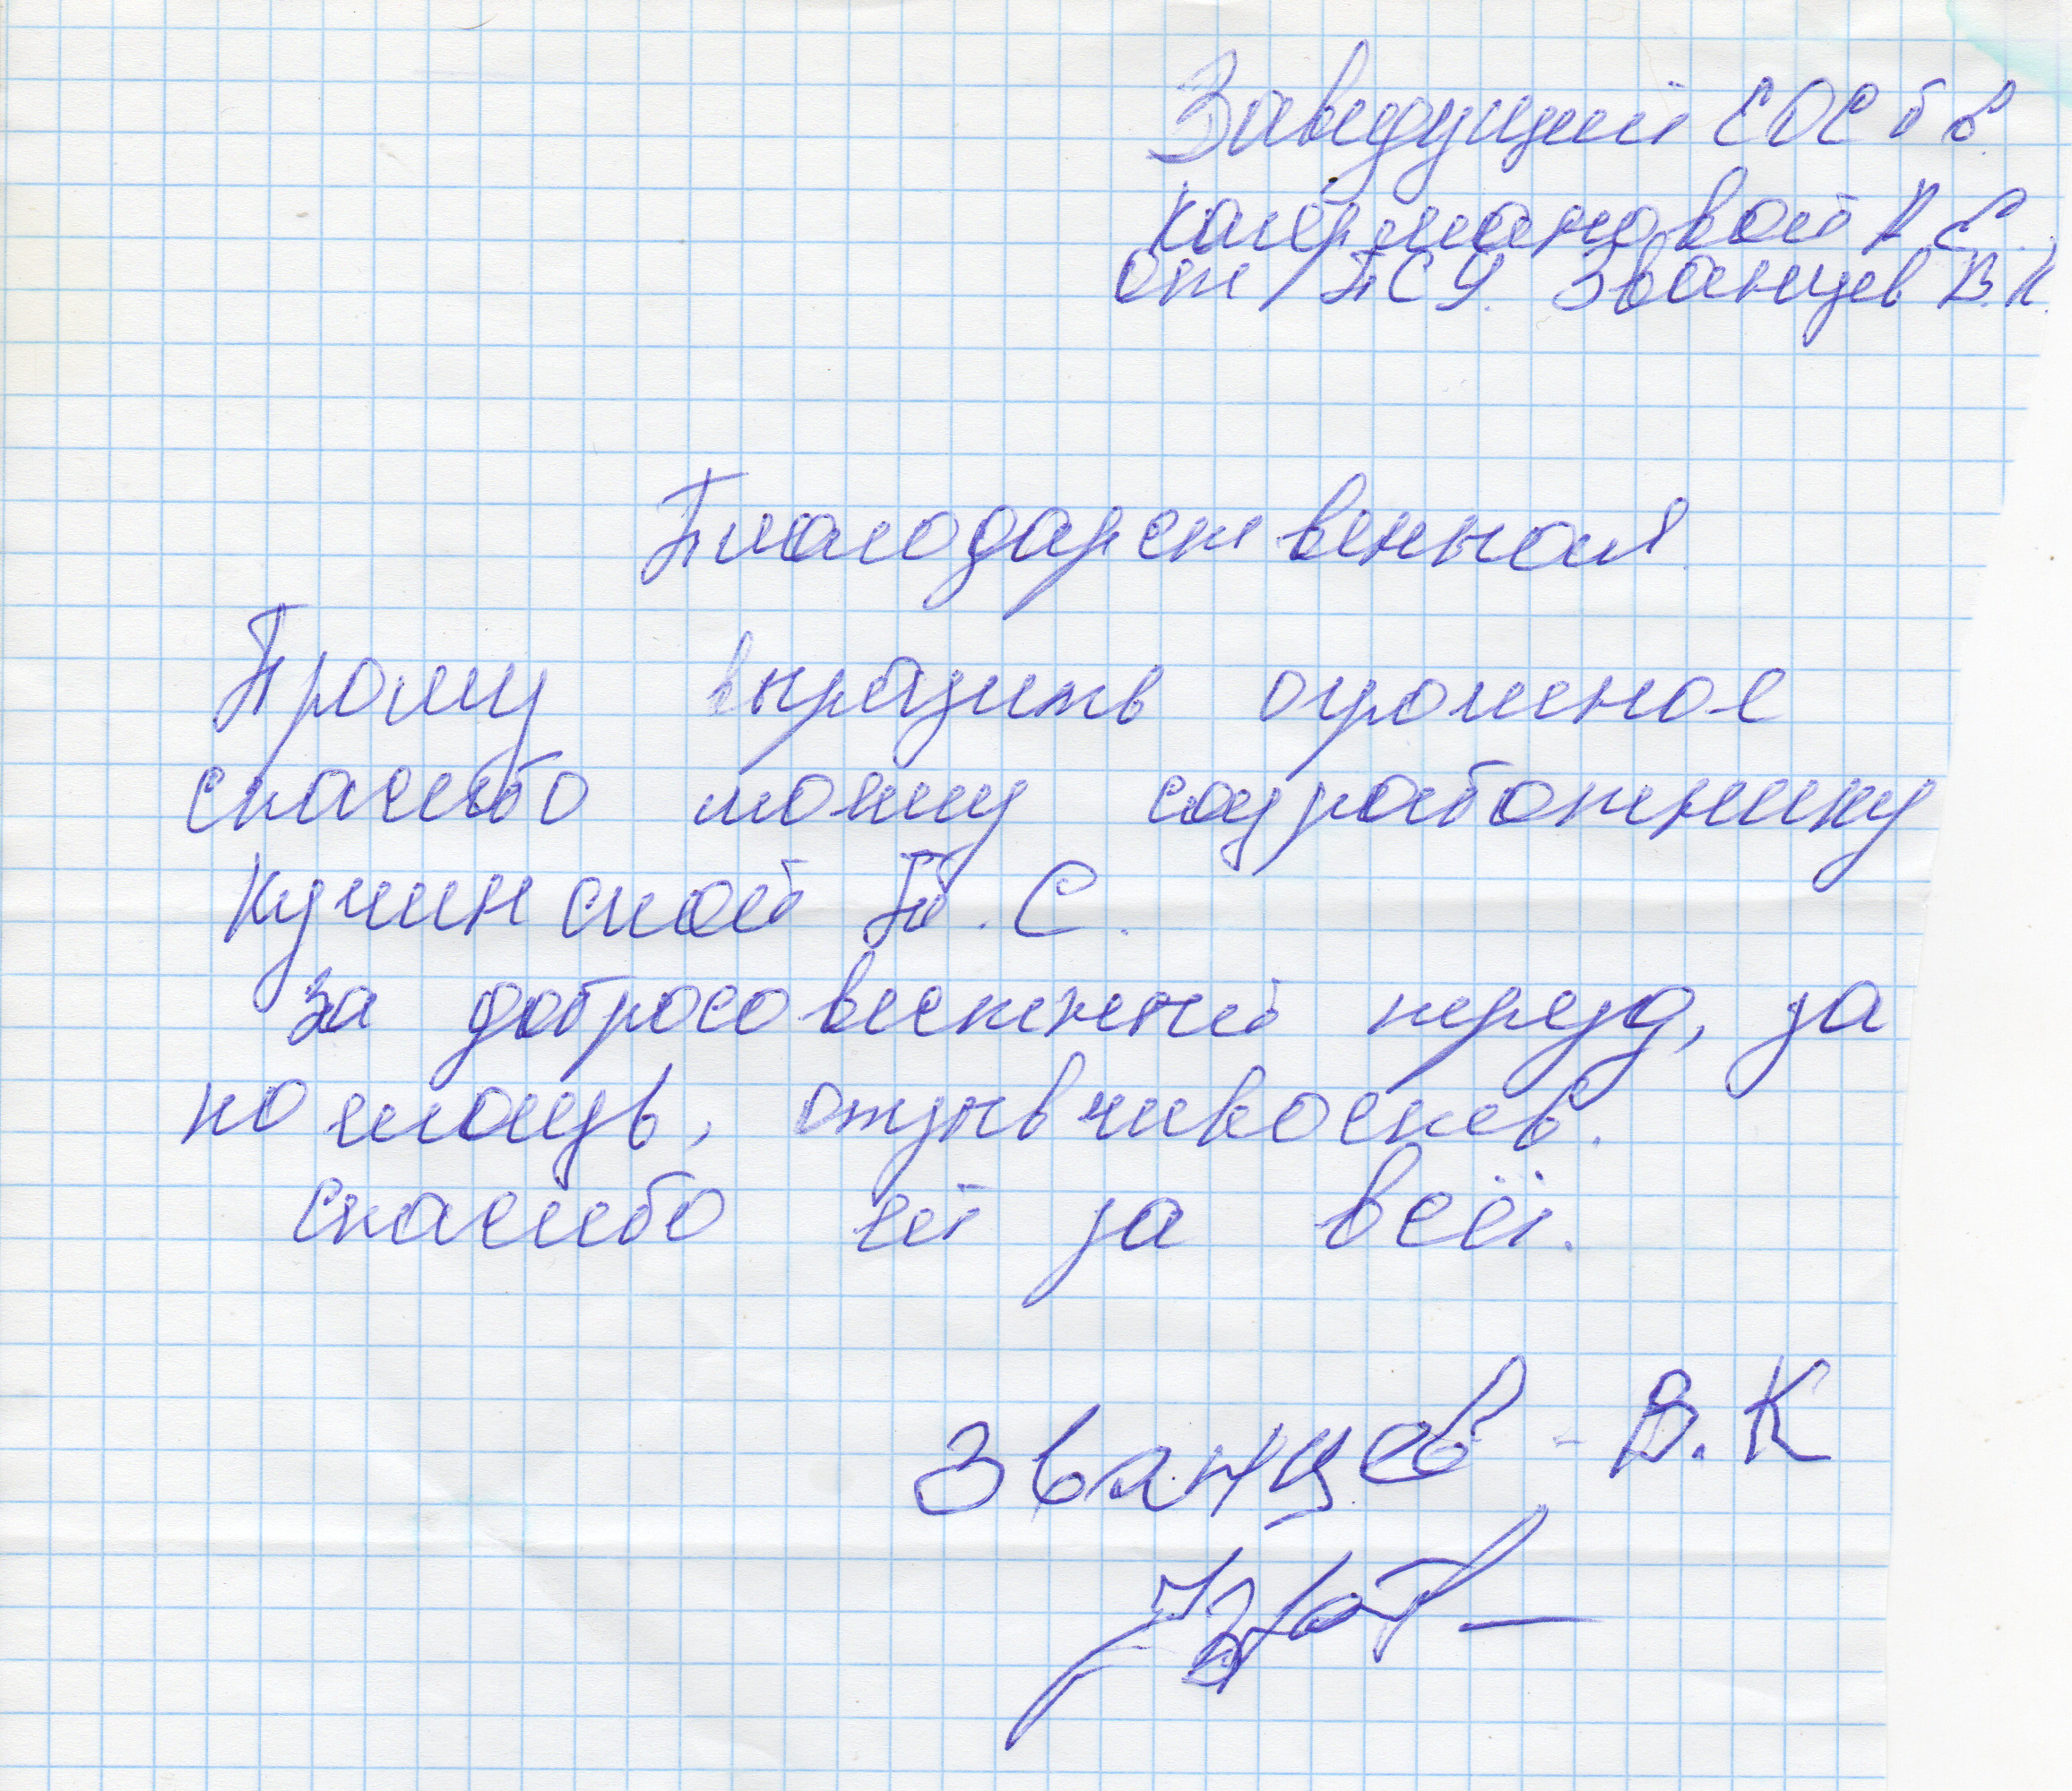 Заведущий СОСБВ
Кагермановой А С.
От ПСУ. Званцев В.К.
Благодарственная
Прошу выразить огромное
спасибо моему соцработнику
Кучинской Т.С.
За добросовестный труд, за
помощь, отзывчивость.
Спасибо ей за всё.
Званцев - В.К